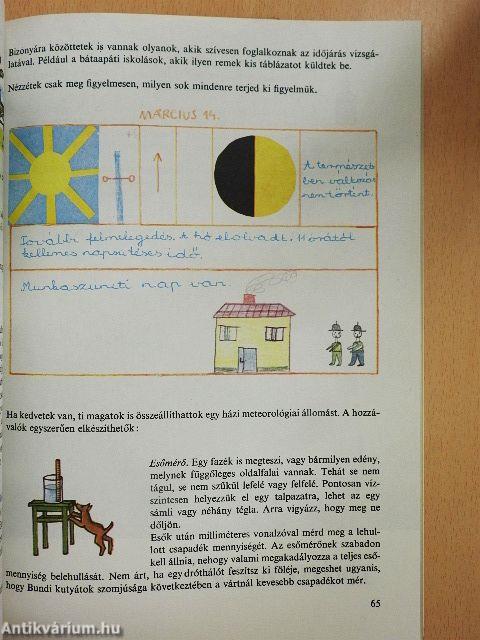 Bizonyára közöttetek is vannak olyanok, akik szívesen foglalkoznak az időjárás vizsgá-
latával. Például a bátaapáti iskolások, akik ilyen remek kis táblázatot küldtek be.
Nézzétek csak meg figyelmesen, milyen sok mindenre terjed ki figyelmük.
MÁRCIUS 14.
A természet-
ben változás
nem történt.
További felmelegedés. A hó elolvadt. 11 órától
kellemes napsütéses idő.
Munkaszüneti nap van.
Ha kedvetek van, ti magatok is összeállíthattok egy házi meteorológiai állomást. A hozzá-
valók egyszerűen elkészíthetők:
Esőmérő. Egy fazék is megteszi, vagy bármilyen edény,
melynek függőleges oldalfalai vannak. Tehát se nem
tágul, se nem szűkül lefelé vagy felfelé. Pontosan víz-
szintesen helyezzük el egy talpazatra, lehet az egy
sámli vagy néhány tégla. Arra vigyázz, hogy ne
dőljön.
Esők után milliméteres vonalzóval mérd meg a lehul-
lott csapadék mennyiségét. Az esőmérőnek szabadon
kell állnia, nehogy valami megakadályozza a teljes eső-
mennyiség belehullását. Nem árt, ha egy dróthálót feszítsz ki föléje, megeshet ugyanis,
hogy Bundi kutyátok szomjúsága következtében a vártnál kevesebb csapadékot mér.
65
Antikvárium.hu